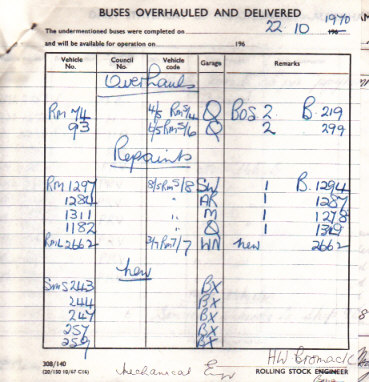 BUSES OVERHAULED AND DELIVERED
The undermentioned buses were completed on 22. 10 1970 196
and will be available for operation on 196
Vehicle No. Council No. Vehicle code Garage Remarks
Overhauls
RM 74 4/5 RM5/4 Q BOS 2 B. 219
93 5/5 RM5/6 Q 2 299
Repaints
RM 1297 8/5 RM5/8 SW 1 B. 1294
1284 " AR 1 1287
1311 " M 1 1278
1182 " Q 1 1349
RML 2662 3/7 RM7/7 WN new 2662
new
SMS 243 BX
244 BX
247 BX
257 BX
259 BX
308/140
(20/150 10/67 C14) Mechanical HW Bromack ROLLING STOCK ENGINEER